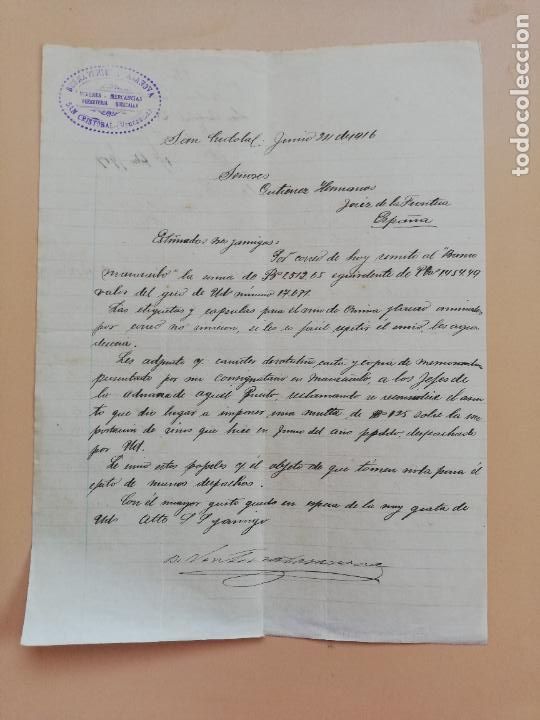 VIVERES - MERCANCIAS
FERRETERIA
SAN CRISTOBAL - (Venezuela)
San Cristobal, Junio 24 de 1916
Señores
Gutierrez Hermanos
Jerez de la Frontera
España
Estimados Srs y amigos:
Por correo de hoy remito al "Banco
Maracaibo" la suma de Bs 2.512.15 equivalente de 1454.49
valor del giro de Ud número 17.671.
Las etiquetas y capsulas para el vino de
por correo no vinieron, si les es facil repetir el envio, les agra-
decera.
Les adjunto carta y copia de memorandum
presentado por mi consignatario en Maracaibo, a los Jefes de
la aduana de aquel Puerto, reclamando se reconsidere el asun-
to que dio lugar a imponer una multa de 125 sobre la im-
portacion de vinos que hice en Junio del año ppdo, despachado
por Ud.
Le envio estos papeles el objeto de que tomen nota para el
de nuevos despachos.
Con el mayor gusto quedo en espera de la muy grata de
Uds Atto S S y amigo
todocoleccion